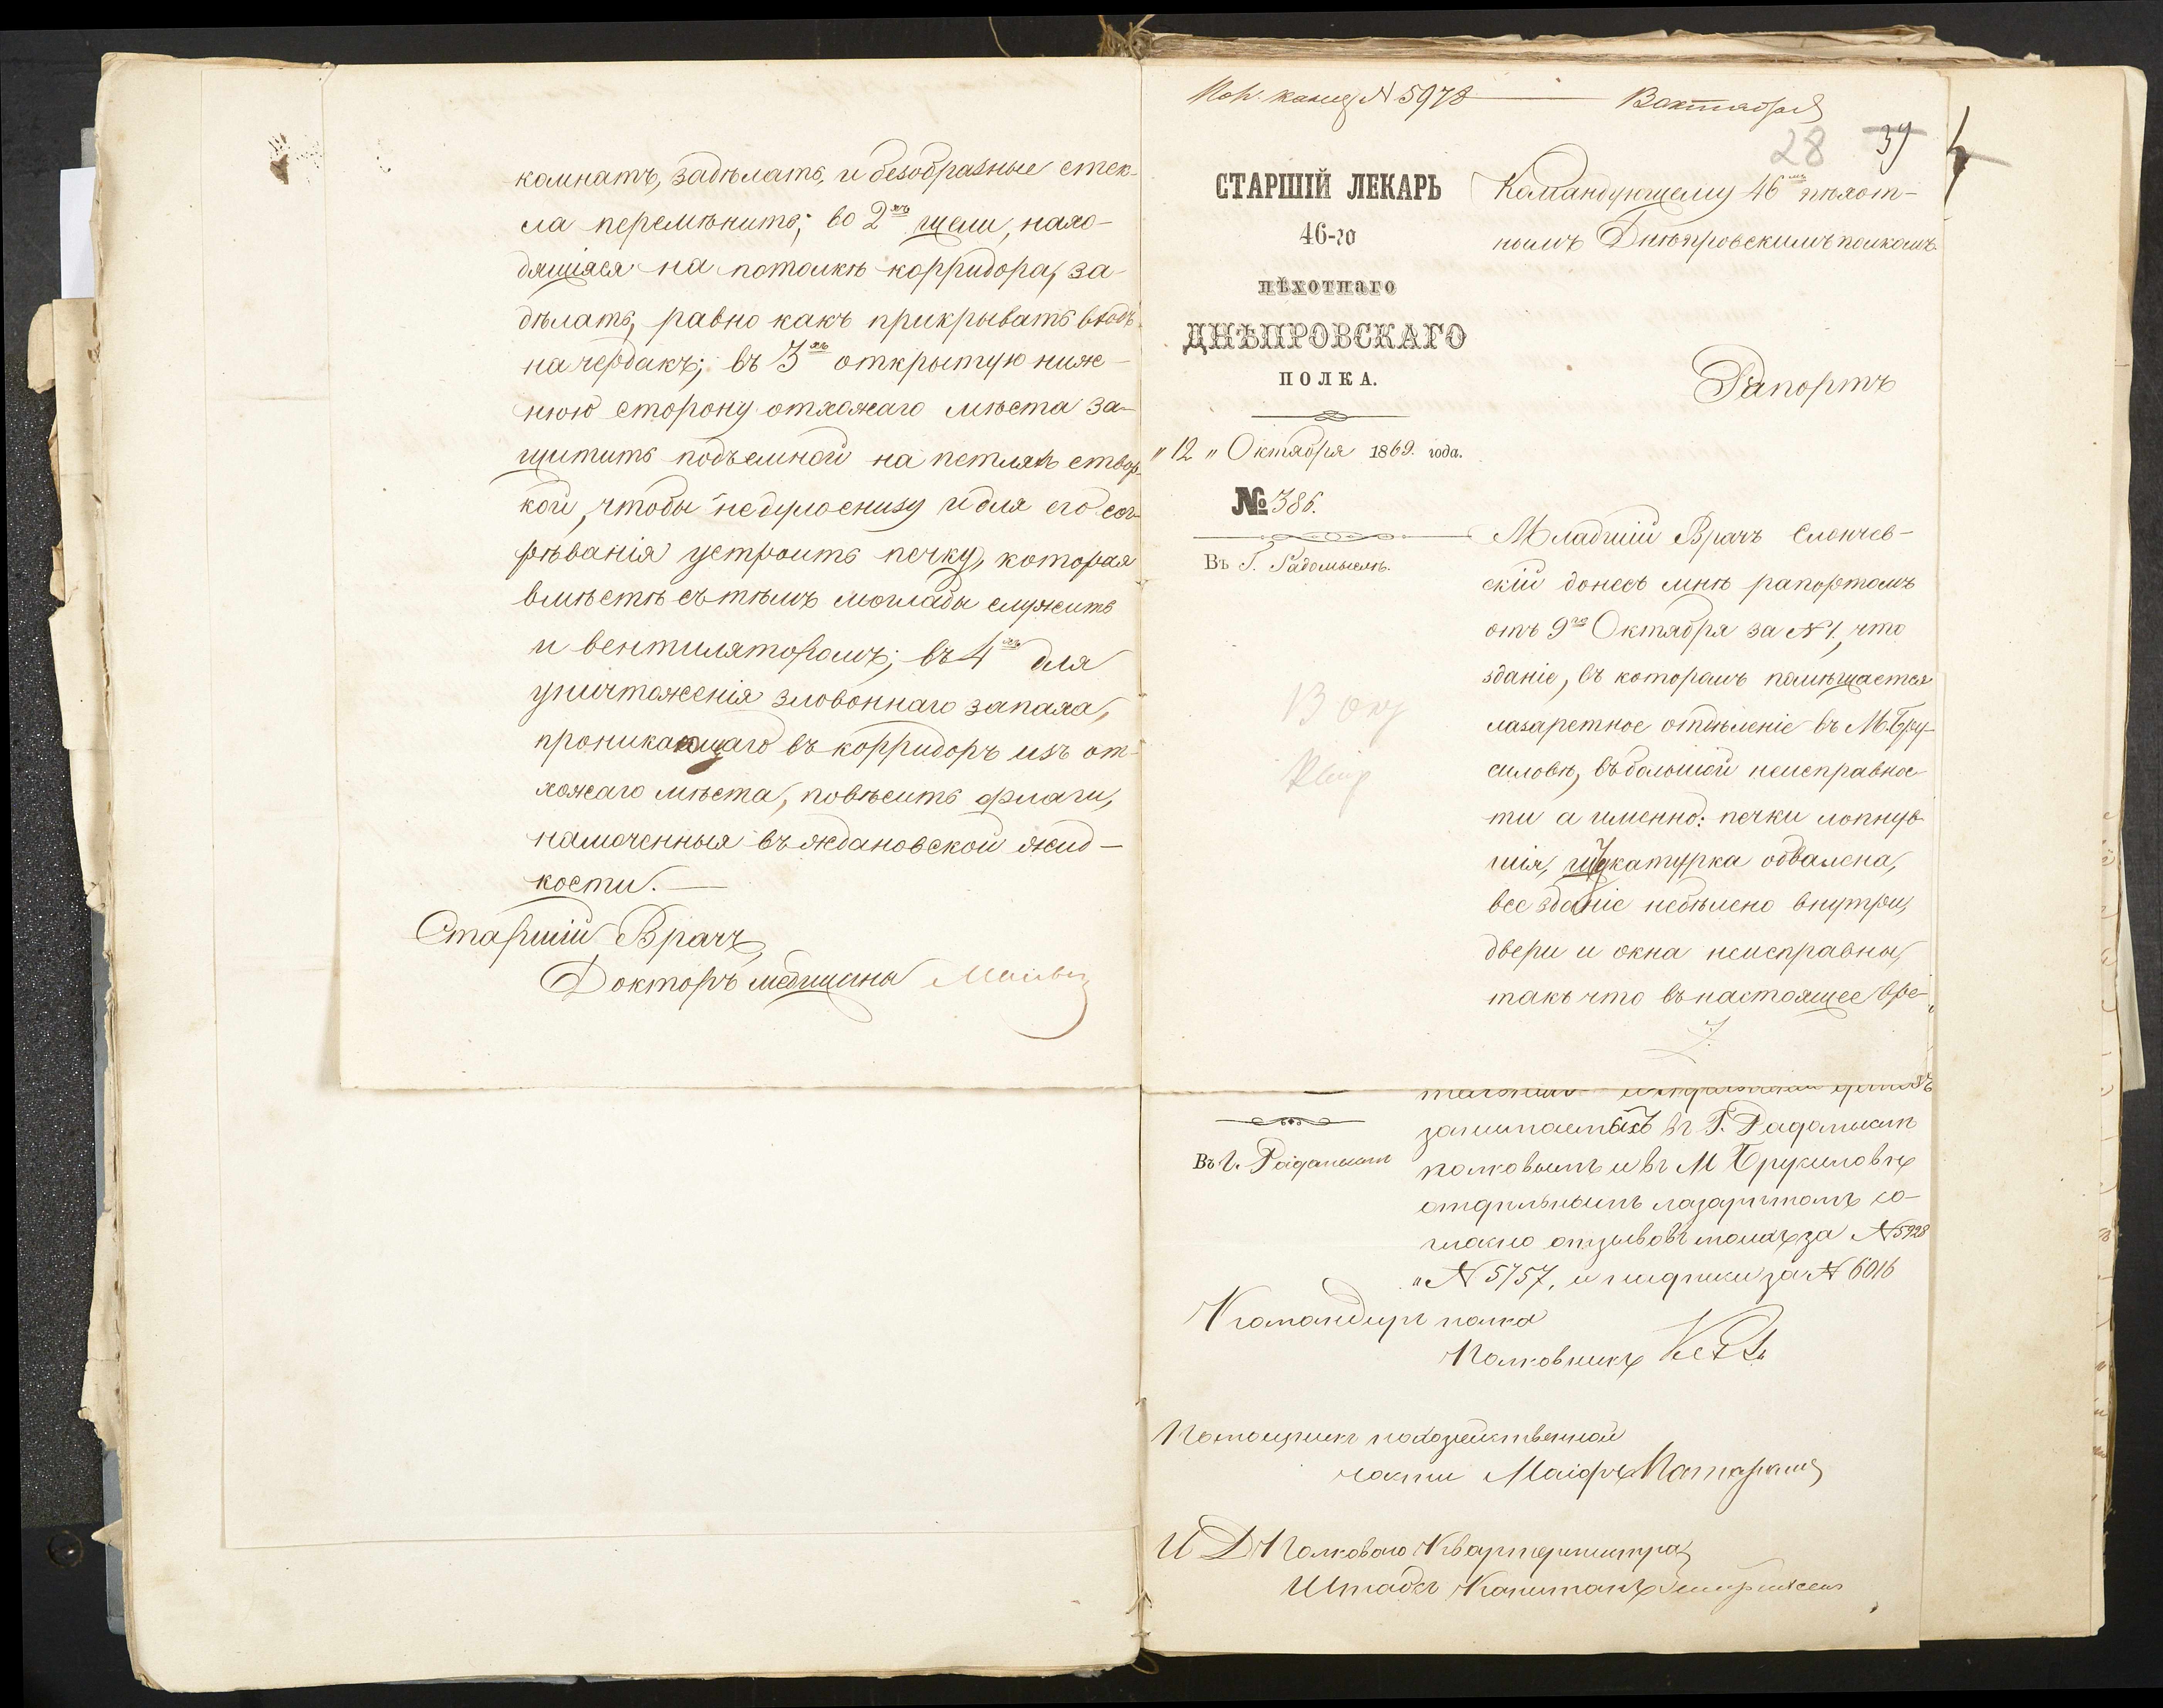 комнатъ, задѣлать, и безобразные стек-
ла перемѣнить; во 2хъ щели, нахо-
дящіяся на потолкѣ корридора, за-
дѣлать, равно какъ прикрывать входъ
на чердакъ; въ 3хъ открытую ниж-
нюю сторону отхожаго мѣста за-
щитить подъемной на петляхъ створ-
кой, чтобы недуло снизу и для его сог-
рѣванія устроить печку, которая
вмѣстѣ съ тѣмъ моглабы служить
и вентиляторомъ; въ 4хъ для
уничтоженія зловоннаго запаха,
проникающаго въ корридоръ изъ от-
хожаго мѣста, повѣсить флаги,
намоченныя въ ждановской жид-
кости.
Старшій Врачъ,
Докторъ медицины
№ 5978 Октября
28 39
СТАРШІЙ ЛЕКАРЬ
46-го
ПѢХОТНАГО
ДНѢПРОВСКАГО
ПОЛКА.
"12" Октября 1869. года.
№ 386.
Въ Г. Радомыслѣ.
Командующему 46мъ пѣхот-
нымъ Днѣпровскимъ полкомъ
Рапортъ
Младшій Врачъ Слончев-
скій донесъ мнѣ рапортомъ
отъ 9го Октября за № 1, что
зданіе, въ которомъ помѣщается
лазаретное отдѣленіе въ М. Бру-
силовѣ, въ большой неисправнос-
ти а именно: печки лопнув-
шія, щукатурка обвалена,
все зданіе небѣлено внутри,
двери и окна неисправны,
такъ что въ настоящее вре-
занимаемыхъ въ Г. Радомыслѣ
Въ Г. Радомыслѣ
полковымъ и въ М Брусиловѣ
отдѣльнымъ лазаретомъ со-
гласно за № 5928
" № 5757, и за № 6016
Командиръ полка
Полковникъ
Помощникъ по хозяйственной
части Маіоръ
И Д Полковаго Квартермистра
Штабсъ Капитанъ